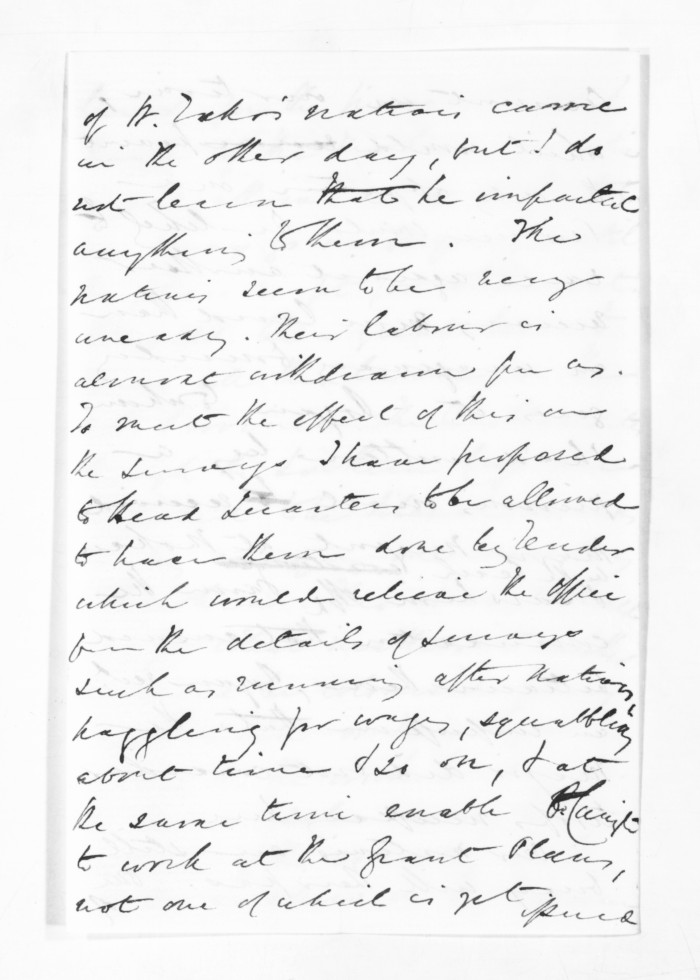 of W. Tako's natives came
in the other day, but I do
not learn that he imparted
anything to them. The
natives seem to be very
uneasy. Their labour is
almost withdrawn from us.
To meet the effect of this on
the surveys I have proposed
to Head Quarters to be allowed
to have them done by Tender
which would relieve the office
from the details of surveys
such as running after natives,
haggling for wages, squabbling
about time & so on, & at
the same time enable
to work at the Grant Plans,
not one of which is yet issued